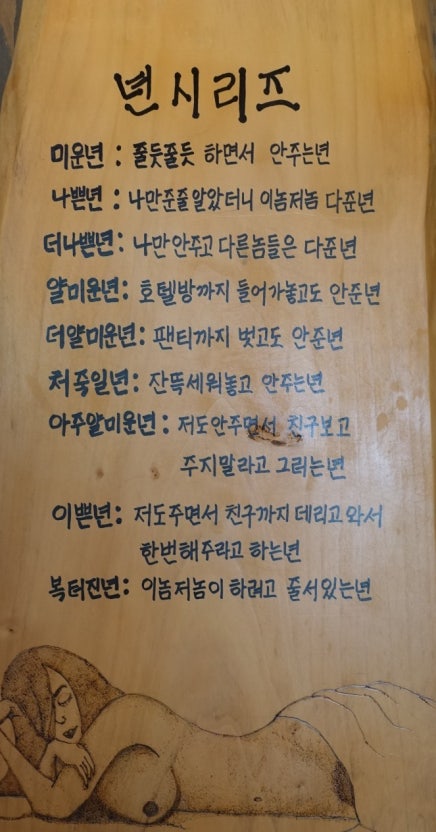 년시리즈
미운년 : 줄듯줄듯 하면서 안주는년
나쁜년 : 나만준줄알았더니 이놈저놈 다준년
더나쁜년 : 나만안주고 다른놈들은 다준년
얄미운년 : 호텔방까지 들어가놓고도 안준년
더얄미운년 : 팬티까지 벗고도 안준년
처죽일년 : 잔뜩세워놓고 안주는년
아주얄미운년 : 저도안주면서 친구보고
주지말라고 그러는년
이쁜년 : 저도주면서 친구까지 데리고와서
한번해주라고 하는년
복터진년 : 이놈저놈이 하려고 줄서있는년